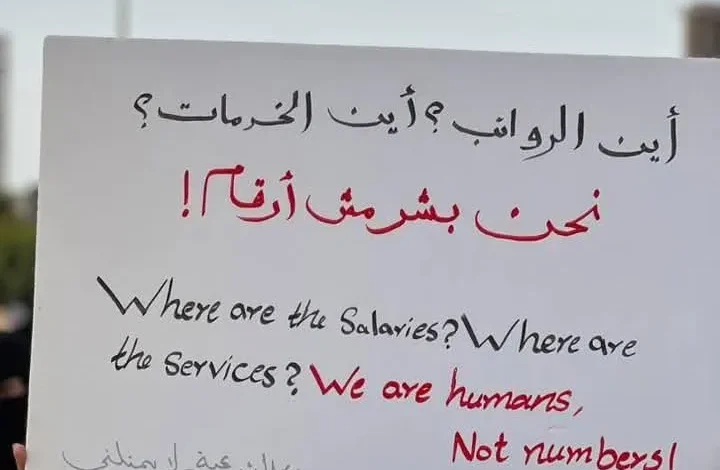 أين الرواتب؟ أين الخدمات؟
نحن بشر مش أرقام!
Where are the Salaries? Where are
the Services? We are humans,
Not numbers!
لا يمثلني